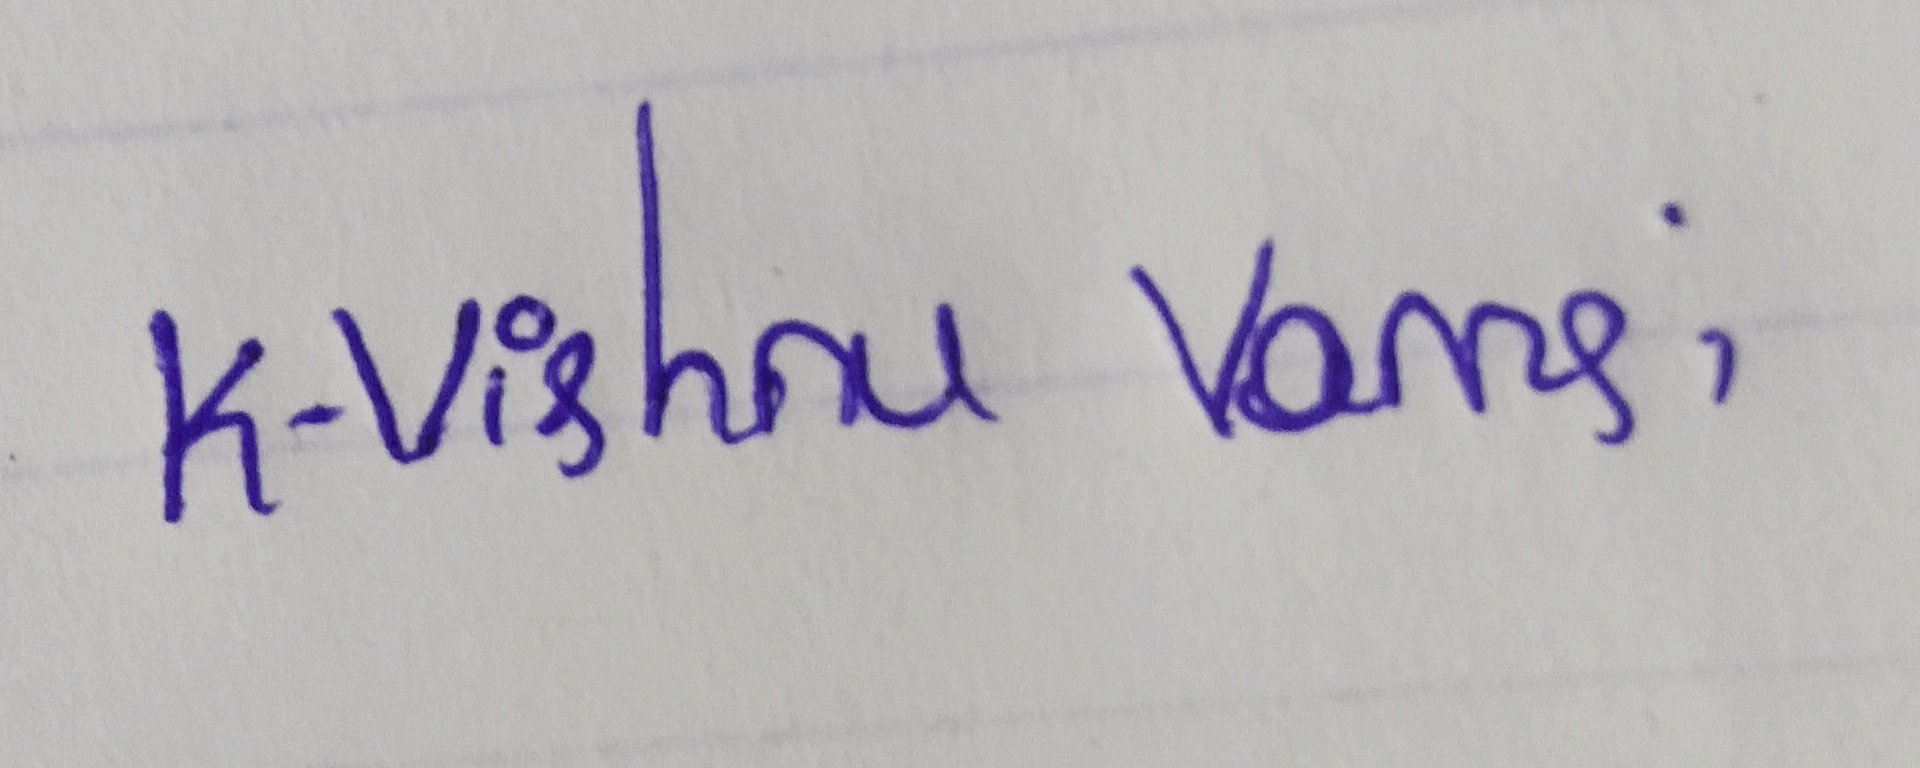 K-Vishnu Vamsi